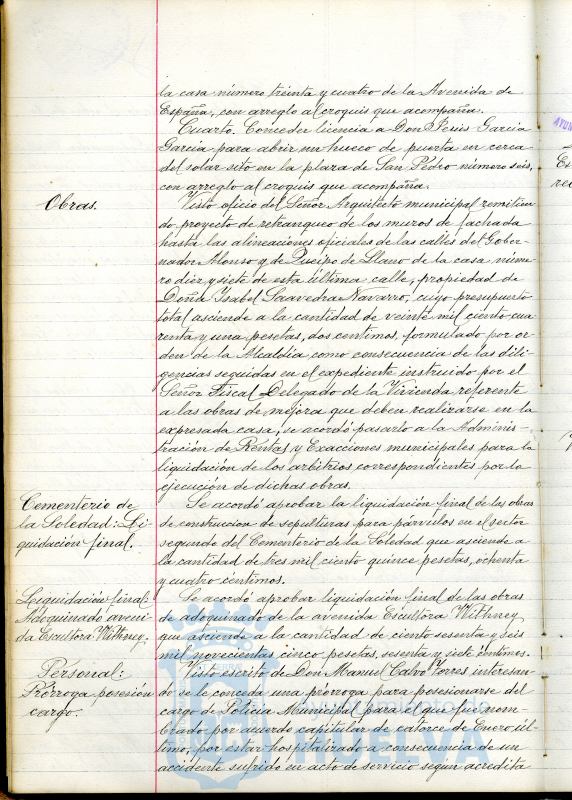 la casa número treinta y cuatro de la Avenida de
España, con arreglo al croquis que acompaña.
Cuarto. Conceder licencia a Don Jesús Garcia
Garcia para abrir un hueco de puerta en cerca
del solar sito en la plaza de San Pedro número seis,
con arreglo al croquis que acompaña.
Obras.
Visto oficio del Señor Arquitecto municipal remitien
do proyecto de retranqueo de los muros de fachada
hasta las alineaciones oficiales de las calles del Gober-
nador Alonso y de Queipo de Llano de la casa núme
ro diez y siete de esta última calle, propiedad de
Doña Isabel Saavedra Navarro, cuyo presupuesto
total asciende a la cantidad de veinte mil ciento cua
renta y una pesetas, dos centimos, formulado por or-
den de la Alcaldía como consecuencia de las dili-
gencias seguidas en el expediente instruido por el
Señor Fiscal Delegado de la Vivienda referente
a las obras de mejora que deben realizarse en la
expresada casa, se acordó pasarlo a la Adminis-
tración de Rentas y Exacciones municipales para la
liquidación de los arbitrios correspondientes por la
ejecución de dichas obras.
Cementerio de
la Soledad: Li-
quidación final.
Se acordó aprobar la liquidación final de las obras
de construccion de sepulturas para párvulos en el sector
segundo del Cementerio de la Soledad que asciende a
la cantidad de tres mil ciento quince pesetas, ochenta
y cuatro centimos.
Liquidación final:
Adoquinado aveni-
da Escultora Withney.
Se acordó aprobar liquidación final de las obras
de adoquinado de la avenida Escultora Withney
que asciende a la cantidad de ciento sesenta y seis
mil novecientas cinco pesetas, sesenta y siete centimos.
Personal:
Prórroga posesión
cargo.
Visto escrito de Don Manuel Calvo Torres interesan-
do se le conceda una prórroga para posesionarse del
cargo de Policia Municipal para el que fué nom-
brado por acuerdo capitular de catorce de Enero úl-
timo, por estar hospitalizado a consecuencia de un
accidente sufrido en acto de servicio según acredita